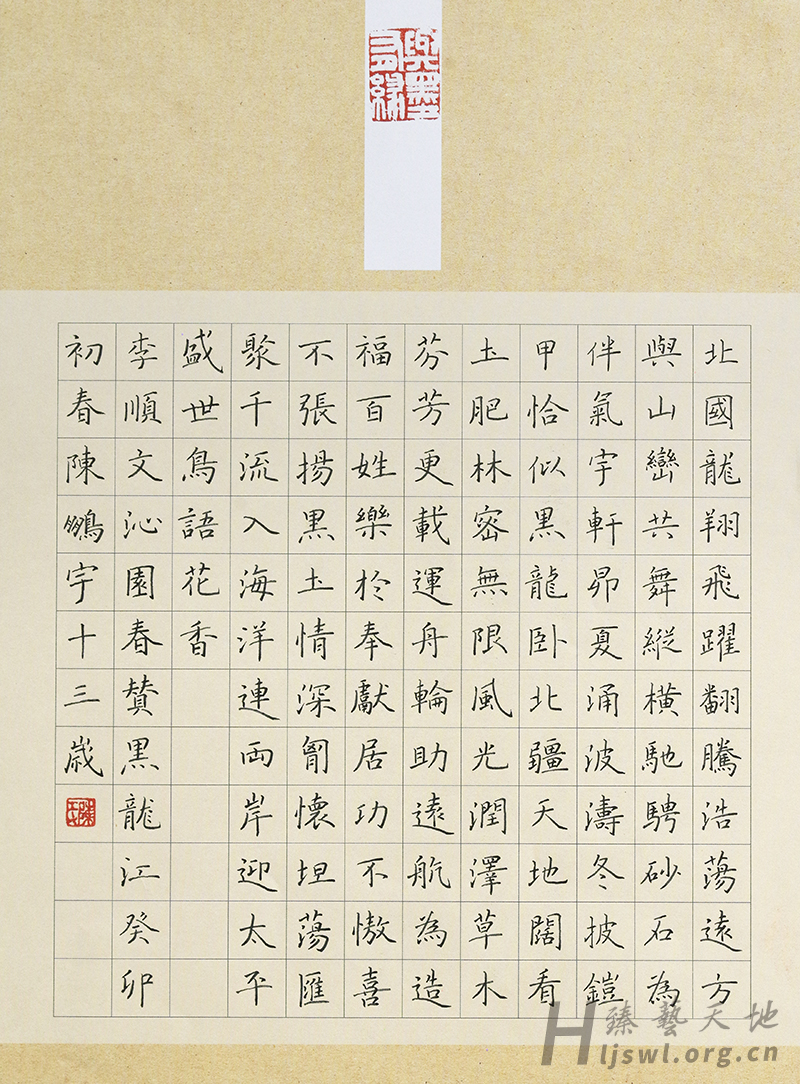 與墨有緣
北國龍翔飛躍翻騰浩蕩遠方
與山巒共舞縱橫馳騁砂石為
伴氣宇軒昂夏涌波濤冬披鎧
甲恰似黑龍卧北疆天地闊看
土肥林密無限風光潤澤草木
芬芳更載運舟輪助遠航為造
福百姓樂於奉獻居功不傲喜
不張揚黑土情深胷懷坦蕩匯
聚千流入海洋連兩岸迎太平
盛世鳥語花香
李順文沁園春贊黑龍江癸卯
初春陳鵬宇十三歲
臻藝天地
Hljswl.org.cn